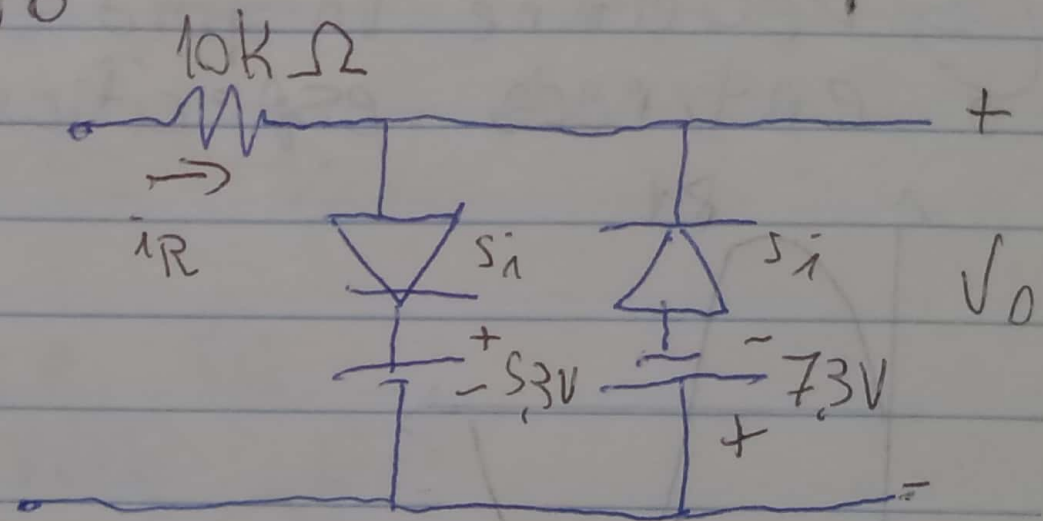 10K Ω
+
iR
Si
Si
Vo
+
- 5,3V
-
7,3V
+
-